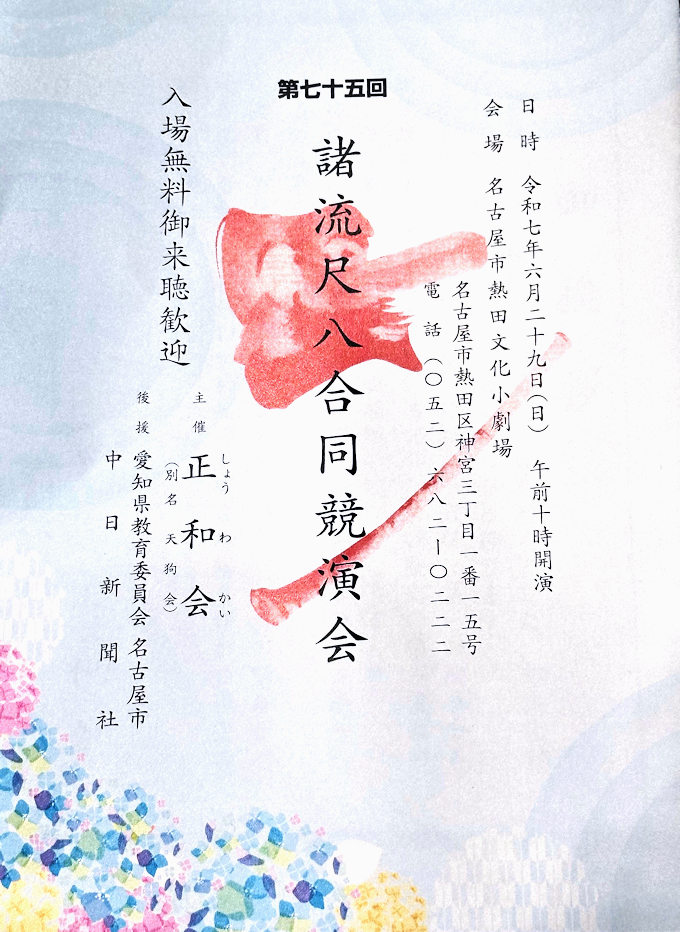 第七十五回
諸流尺八合同競演会
日時 令和七年六月二十九日(日) 午前十時開演
会場 名古屋市熱田文化小劇場
名古屋市熱田区神宮三丁目一番一五号
電話 (〇五二) 六八二ー〇二二二
入場無料御来聴歓迎
主催 正和会
しょうわかい
(別名天狗会)
後援 愛知県教育委員会 名古屋市
中日新聞社